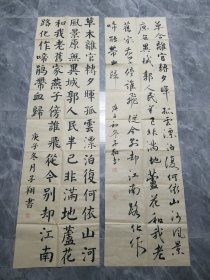 草合離宮轉夕暉孤雲漂泊復何依山河風景
原無異城郭人民半已非滿地蘆花和我老
舊家燕子傍誰飛從今別却江南路化作
啼鵑帶血歸 庚子
草木離宮轉夕暉孤雲漂泊復何依山河
風景原無異城郭人民半已非滿地蘆花
和我老舊家燕子傍誰飛從今別却江南
路化作啼鵑帶血歸 庚子冬月子翔書